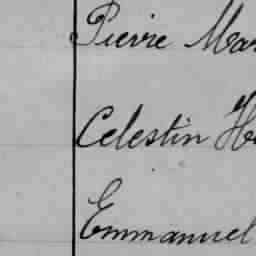 Pierre Mar
Celestin He
Emmanuel